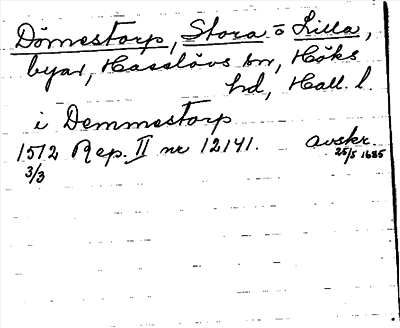 Dömestorp, Stora o Lilla,
byar, Hasslövs sn, Höks
hd, Hall. l.
i Demmestorp
1512 Rep. II nr 12141. Avskr.
3/3 25/5 1685